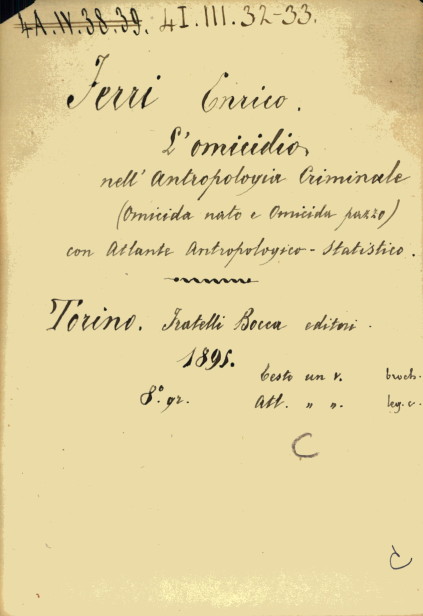 4A.IV.38.39. 4I.III.32-33.
Ferri Enrico.
L'omicidio
nell'Antropologia Criminale
(Omicida nato e Omicida pazzo)
con Atlante Antropologico-Statistico.
Torino. Fratelli Bocca editori.
1895.
Testo un v. broch.
8.º gr. Atl. " ". leg. c.
C
C